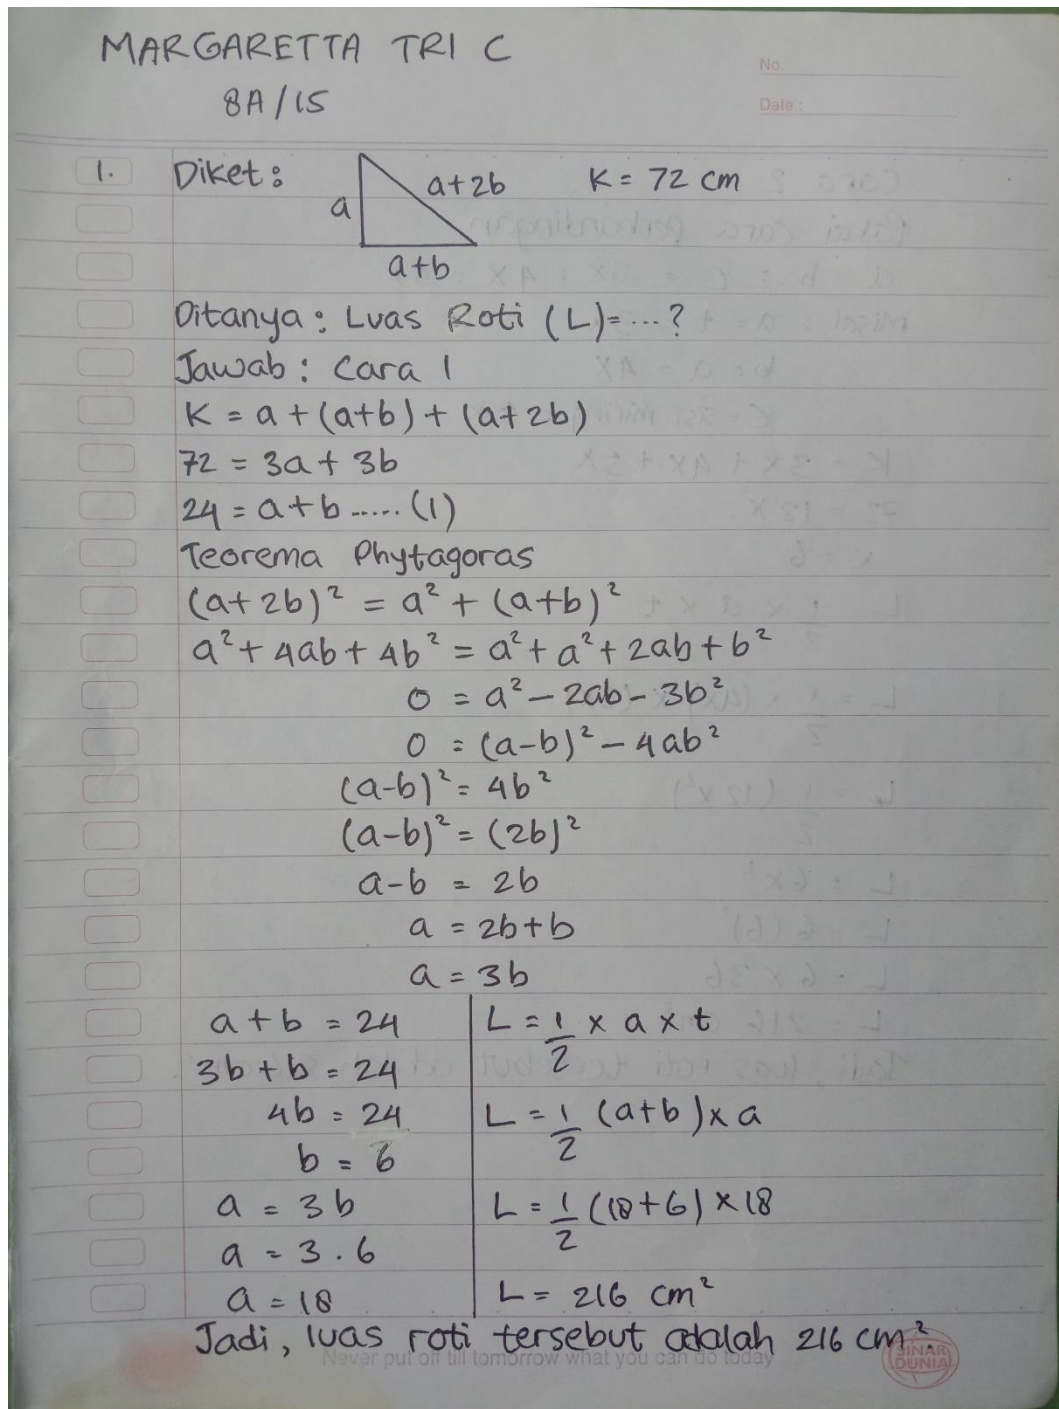 MARGARETTA TRI C
8A/15
No.
Date :
1. Diket: a a+2b a+b K = 72 cm
Ditanya: Luas Roti (L)=...?
Jawab: Cara 1
K = a + (a+b) + (a+2b)
72 = 3a + 3b
24 = a+b ...... (1)
Teorema Phytagoras
(a+2b)² = a² + (a+b)²
a² + 4ab + 4b² = a² + a² + 2ab + b²
0 = a² - 2ab - 3b²
0 = (a-b)² - 4ab²
(a-b)² = 4b²
(a-b)² = (2b)²
a-b = 2b
a = 2b+b
a = 3b
a+b = 24
3b+b = 24
4b = 24
b = 6
a = 3b
a = 3.6
a = 18
L = 1/2 x a x t
L = 1/2 (a+b) x a
L = 1/2 (18+6) x 18
L = 216 cm²
Jadi, luas roti tersebut adalah 216 cm².
Never put off till tomorrow what you can do today
SINAR DUNIA